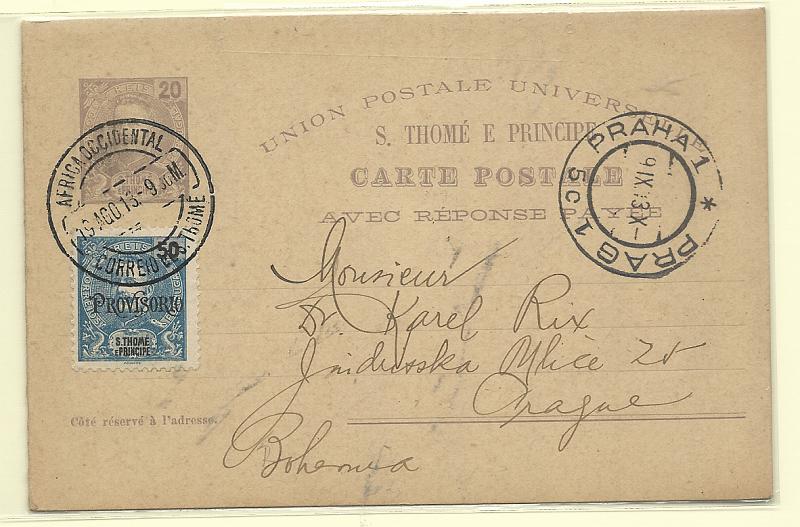 20
REIS
UNION POSTALE UNIVERSELLE
S. THOMÉ E PRINCIPE
CARTE POSTALE
AVEC RÉPONSE PAYÉE
AFRICA OCCIDENTAL
CORREIO S. THOMÉ
PRAHA 1 * PRAG 1
5c
50
REIS
PROVISORIO
S. THOME
E PRINCIPE
Monsieur
Dr. Karel Rix
Jindrisska Ulice 20
Prague
Bohemia
Côté réservé à l'adresse.